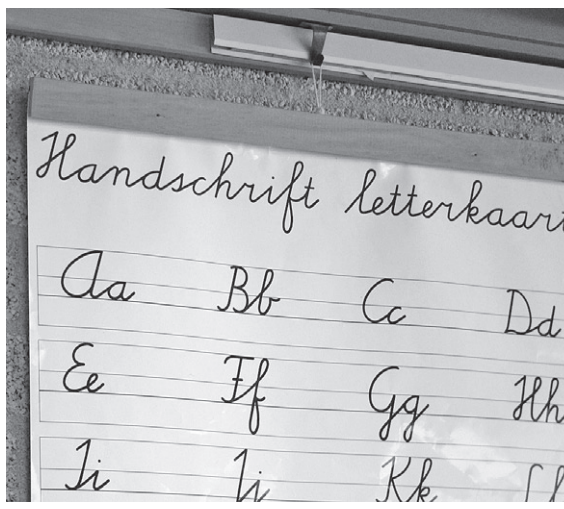 Handschrift letterkaart
Aa Bb Cc Dd
Ee Ff Gg Hh
Ii Jj Kk Ll